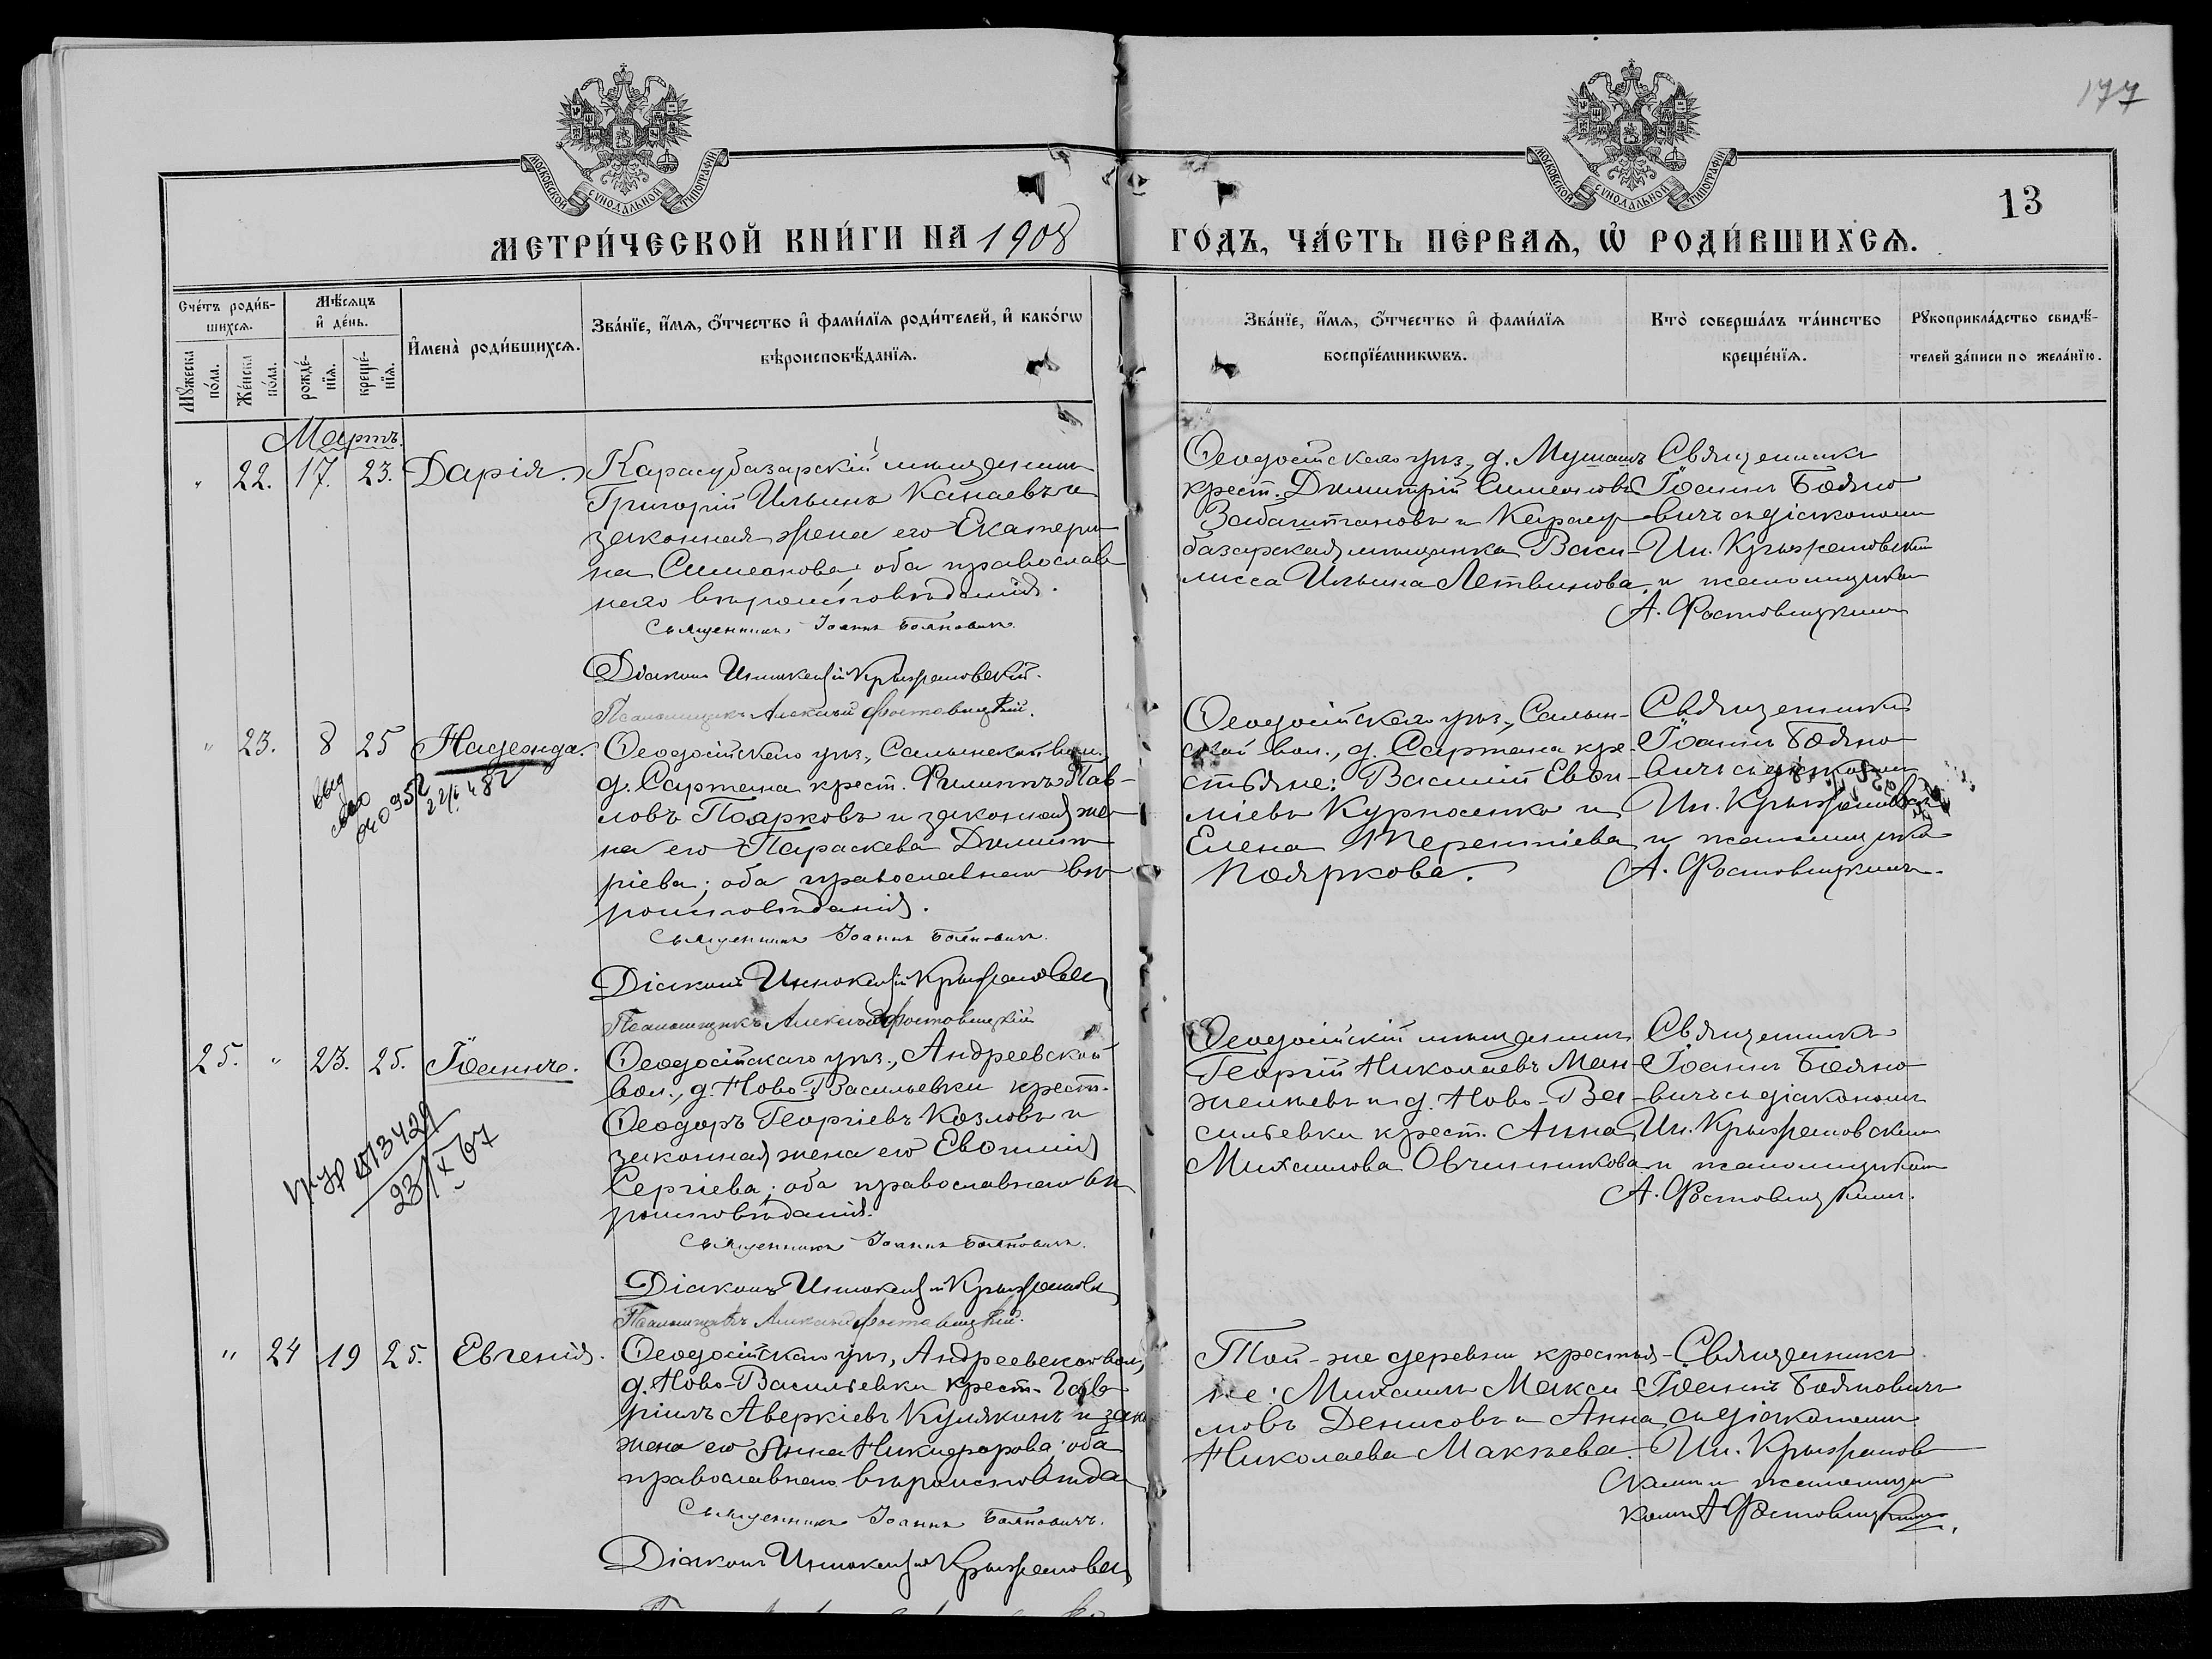 177
13
МОСКОВСКОЙ СѴНОДАЛЬНОЙ ТИПОГРАФІИ
МОСКОВСКОЙ СѴНОДАЛЬНОЙ ТИПОГРАФІИ
МЕТРИ́ЧЕСКОЙ КНИ́ГИ НА 1908 ГО́ДЪ, ЧА́СТЬ ПЕ́РВАѦ, Ѡ҆ РОДИ́ВШИХСѦ.
Сче́тъ роди́в-
шихсѧ.
Мѣ́сяцъ
и҆ де́нь.
Мꙋ́жеска
по́ла.
Же́нска
по́ла.
рожде́-
нїѧ.
креще́-
нїѧ.
И҆мена̀ роди́вшихсѧ.
Зва́нїе, и҆́мѧ, ѻ҆́тчество и҆ фами́лїѧ роди́телей, и҆ како́гѡ
вѣроисповѣ́данїѧ.
Зва́нїе, и҆́мѧ, ѻ҆́тчество и҆ фами́лїѧ
воспрїе́мникѡвъ.
Кто̀ соверша́лъ та́инство
креще́нїѧ.
Рꙋкоприкла́дство свидѣ́-
телей за́писи по жела́нїю.
Мартъ.
" 22. 17. 23. Дарія.
Карасубазарскій мѣщанинъ
Григорій Ильинъ Канаевъ и
законная жена его Екатери-
на Симеонова; оба православ-
наго вѣроисповѣданія.
Священникъ Іоаннъ Бояновичъ.
Діаконъ Иннокентій Крыжановскій.
Псаломщикъ Алексій Фостовицкій.
Ѳеодосійскаго уѣз., д. Мушашъ
крест. Димитрій Симеоновъ
Забаштановъ и Карасу-
базарская мѣщанка Васи-
лисса Ильина Летвинова.
Священникъ
Іоаннъ Бояно-
вичъ съ діакономъ
Ин. Крыжановскимъ
и псаломщикомъ
А. Фостовицкимъ
" 23. 8 25 Надежда.
040952
Ѳеодосійскаго уѣз., Салынской вол.
д. Сартана крест. Филиппъ Пав-
ловъ Поярковъ и законная же-
на его Параскева Димит-
ріева; оба православнаго вѣ-
роисповѣданія.
Священникъ Іоаннъ Бояновичъ.
Діаконъ Иннокентій Крыжановскій
Псаломщикъ Алексій Фостовицкій
Ѳеодосійскаго уѣз., Салын-
ской вол., д. Сартана кре-
стьяне: Василій Евѳи-
міевъ Курносенко и
Елена Терентіева
Пояркова.
Священникъ
Іоаннъ Бояно-
вичъ съ діакономъ
Ин. Крыжановскимъ
и псаломщикомъ
А. Фостовицкимъ.
25. " 23. 25. Іоаннъ.
23/X 67
Ѳеодосійскаго уѣз., Андреевской
вол., д. Ново-Васильевки крест.
Ѳеодоръ Георгіевъ Козловъ и
законная жена его Евѳимія
Сергіева; оба православнаго вѣ-
роисповѣданія.
Священникъ Іоаннъ Бояновичъ.
Діаконъ Иннокентій Крыжановскій
Псаломщикъ Алексій Фостовицкій.
Ѳеодосійскій мѣщанинъ
Георгій Николаевъ Ман-
желѣевъ и д. Ново-Ва-
сильевки крест. Анна
Михаилова Овчинникова
Священникъ
Іоаннъ Бояно-
вичъ съ діакономъ
Ин. Крыжановскимъ
и псаломщикомъ
А. Фостовицкимъ.
" 24 19 25. Евгенія.
Ѳеодосійскаго уѣз., Андреевской вол.,
д. Ново-Васильевки крест. Гав-
ріилъ Аверкіевъ Кулякинъ и зак.
жена его Анна Никифорова; оба
православнаго вѣроисповѣда
Священникъ Іоаннъ Бояновичъ.
Діаконъ Иннокентій Крыжановскій
Той-же деревни крестья-
не: Михаилъ Макси-
мовъ Денисовъ и Анна
Николаева Макѣева.
Священникъ
Іоаннъ Бояновичъ
съ діакономъ
Ин. Крыжанов-
скимъ и псаломщи-
комъ А. Фостовицкимъ.